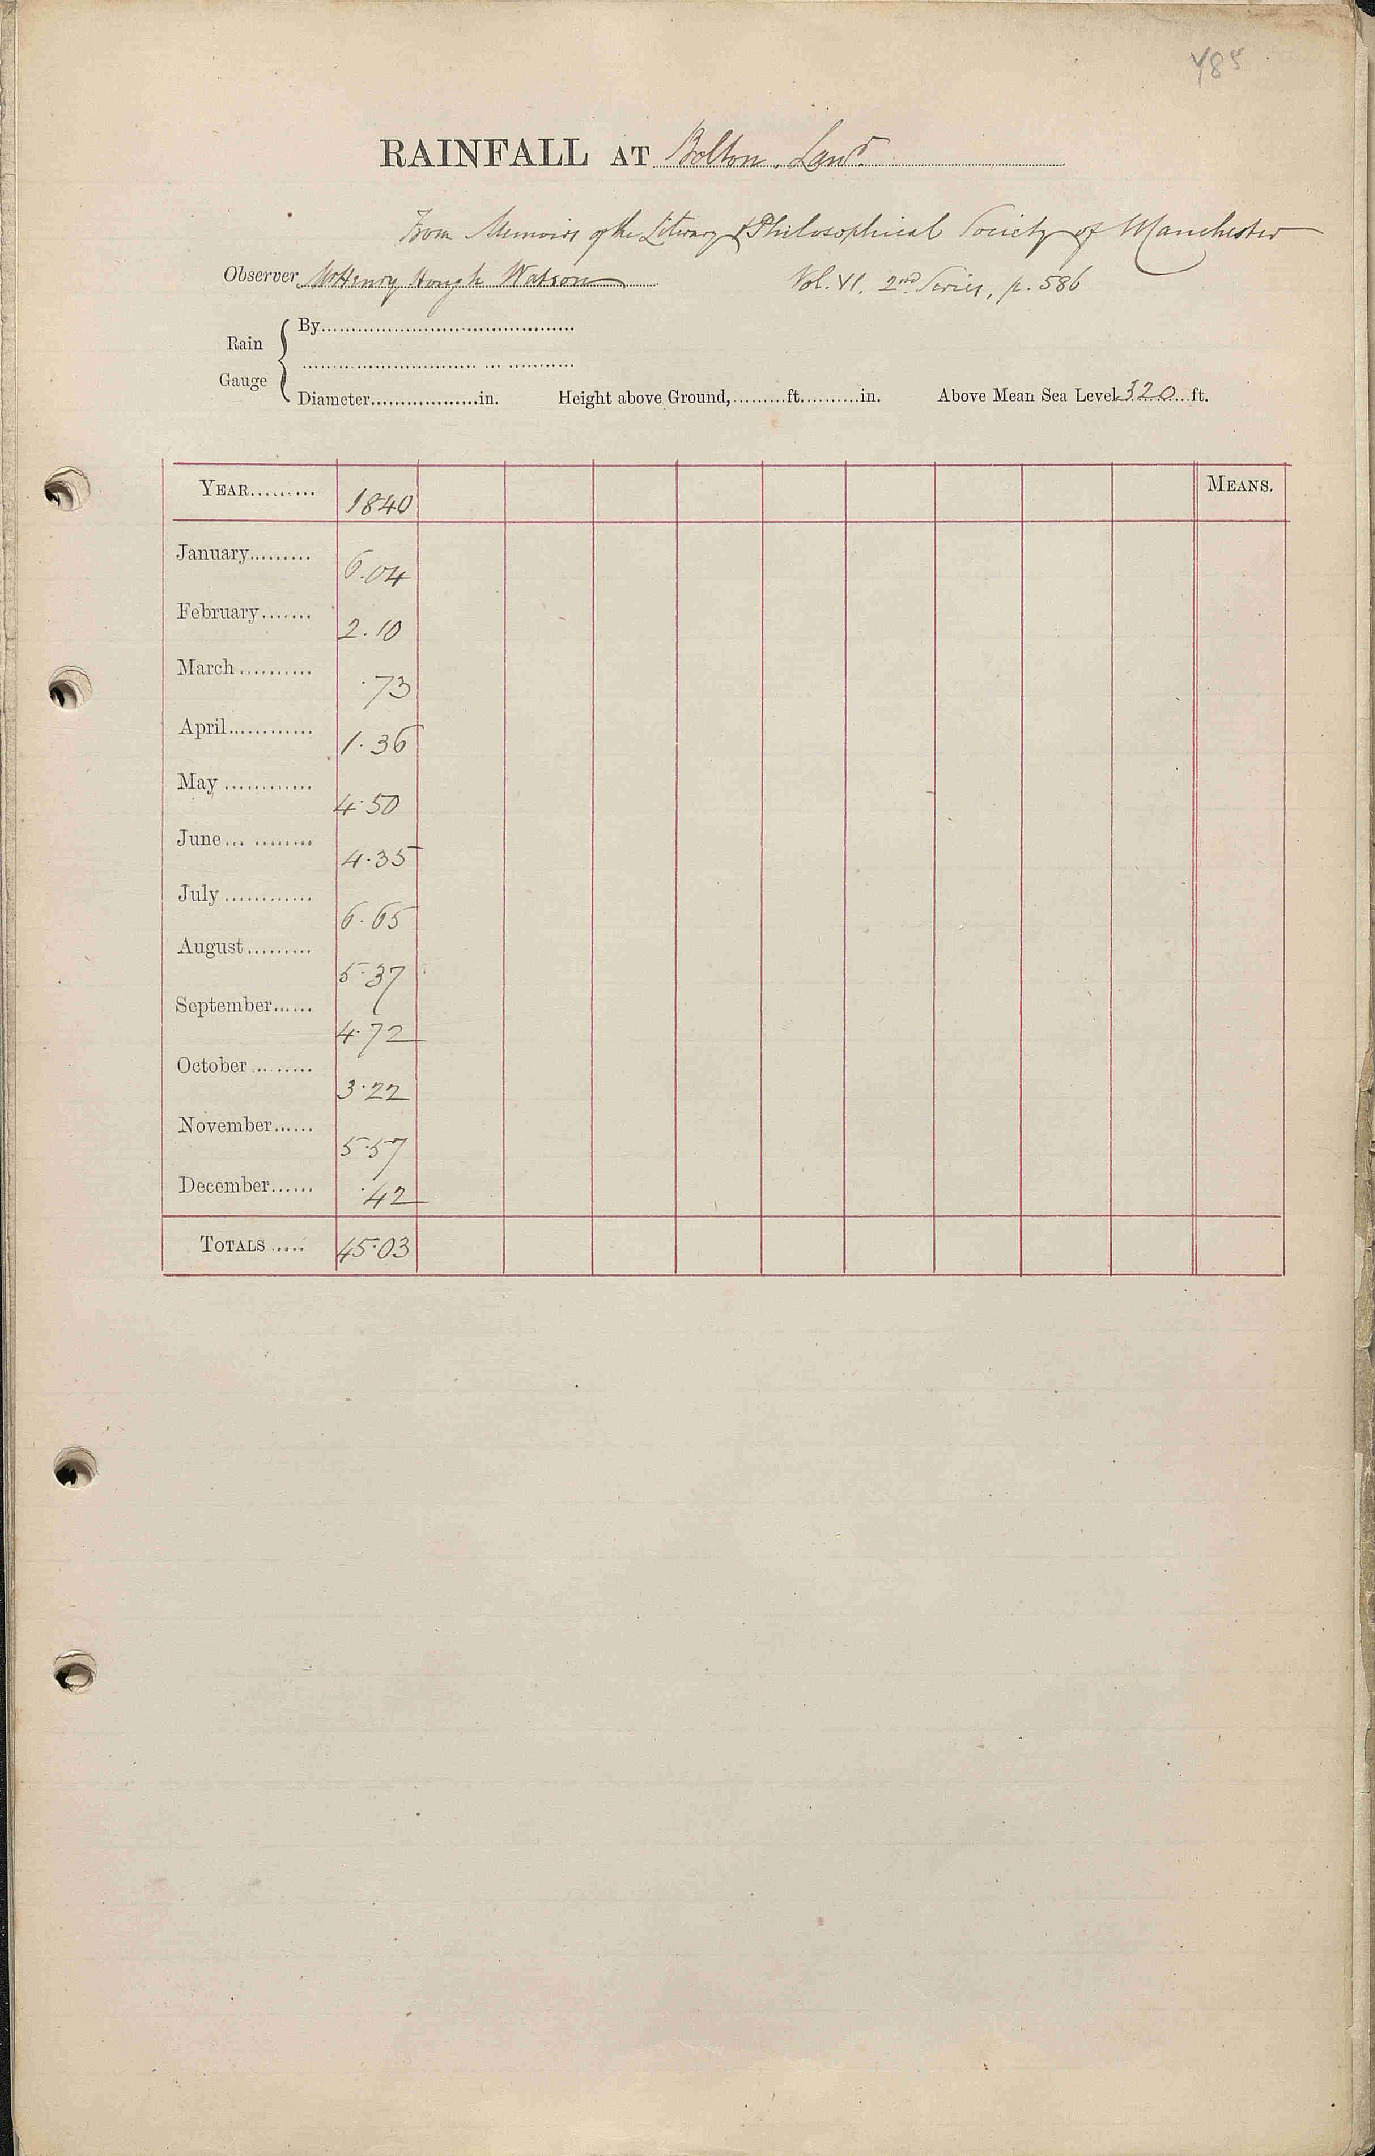 485
RAINFALL AT Bolton, Lancs.
From Memoirs of the Literary & Philosophical Society of Manchester
Observer Mr Henry Hough Watson Vol. VI. 2nd Series, p. 586
Rain Gauge
By
Diameter in. Height above Ground, ft. in. Above Mean Sea Level 320 ft.
YEAR 1840 MEANS.
January 6.04
February 2.10
March .73
April 1.36
May 4.50
June 4.35
July 6.65
August 5.37
September 4.72
October 3.22
November 5.57
December .42
TOTALS 45.03